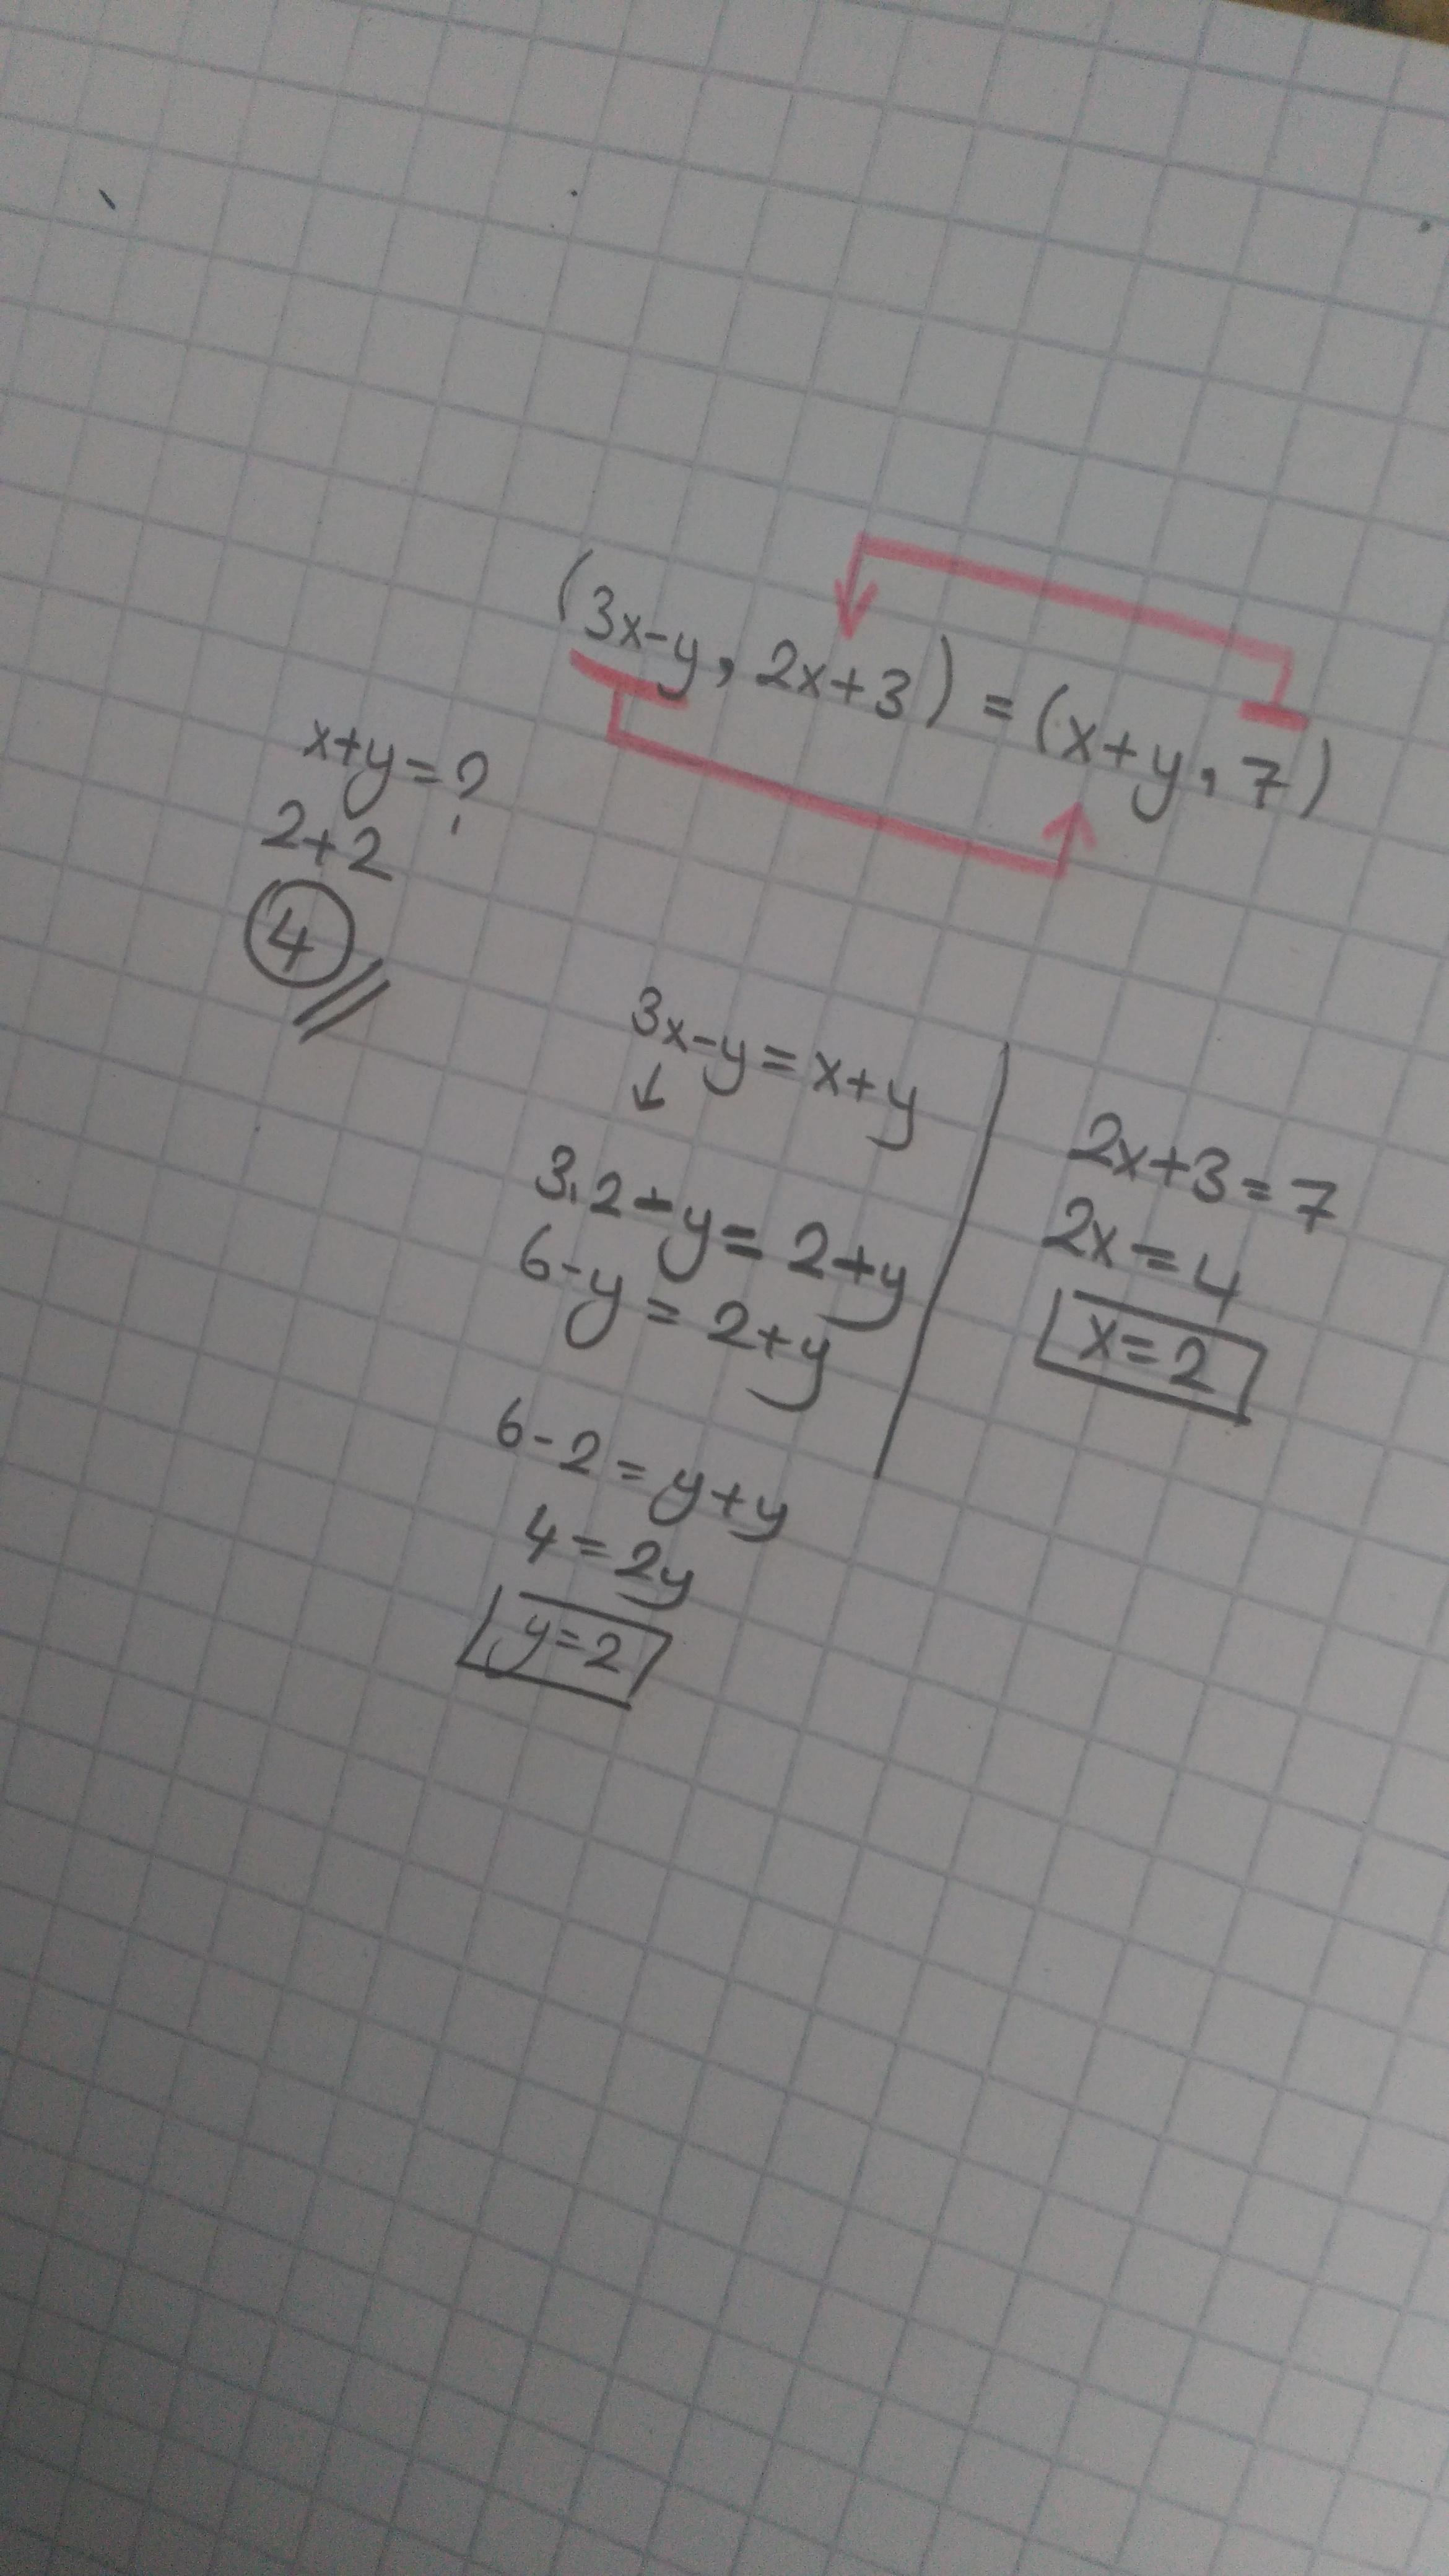 (3x-y, 2x+3) = (x+y, 7)
x+y=?
2+2
4
3x-y=x+y
3.2-y=2+y
6-y=2+y
6-2=y+y
4=2y
y=2
2x+3=7
2x=4
x=2